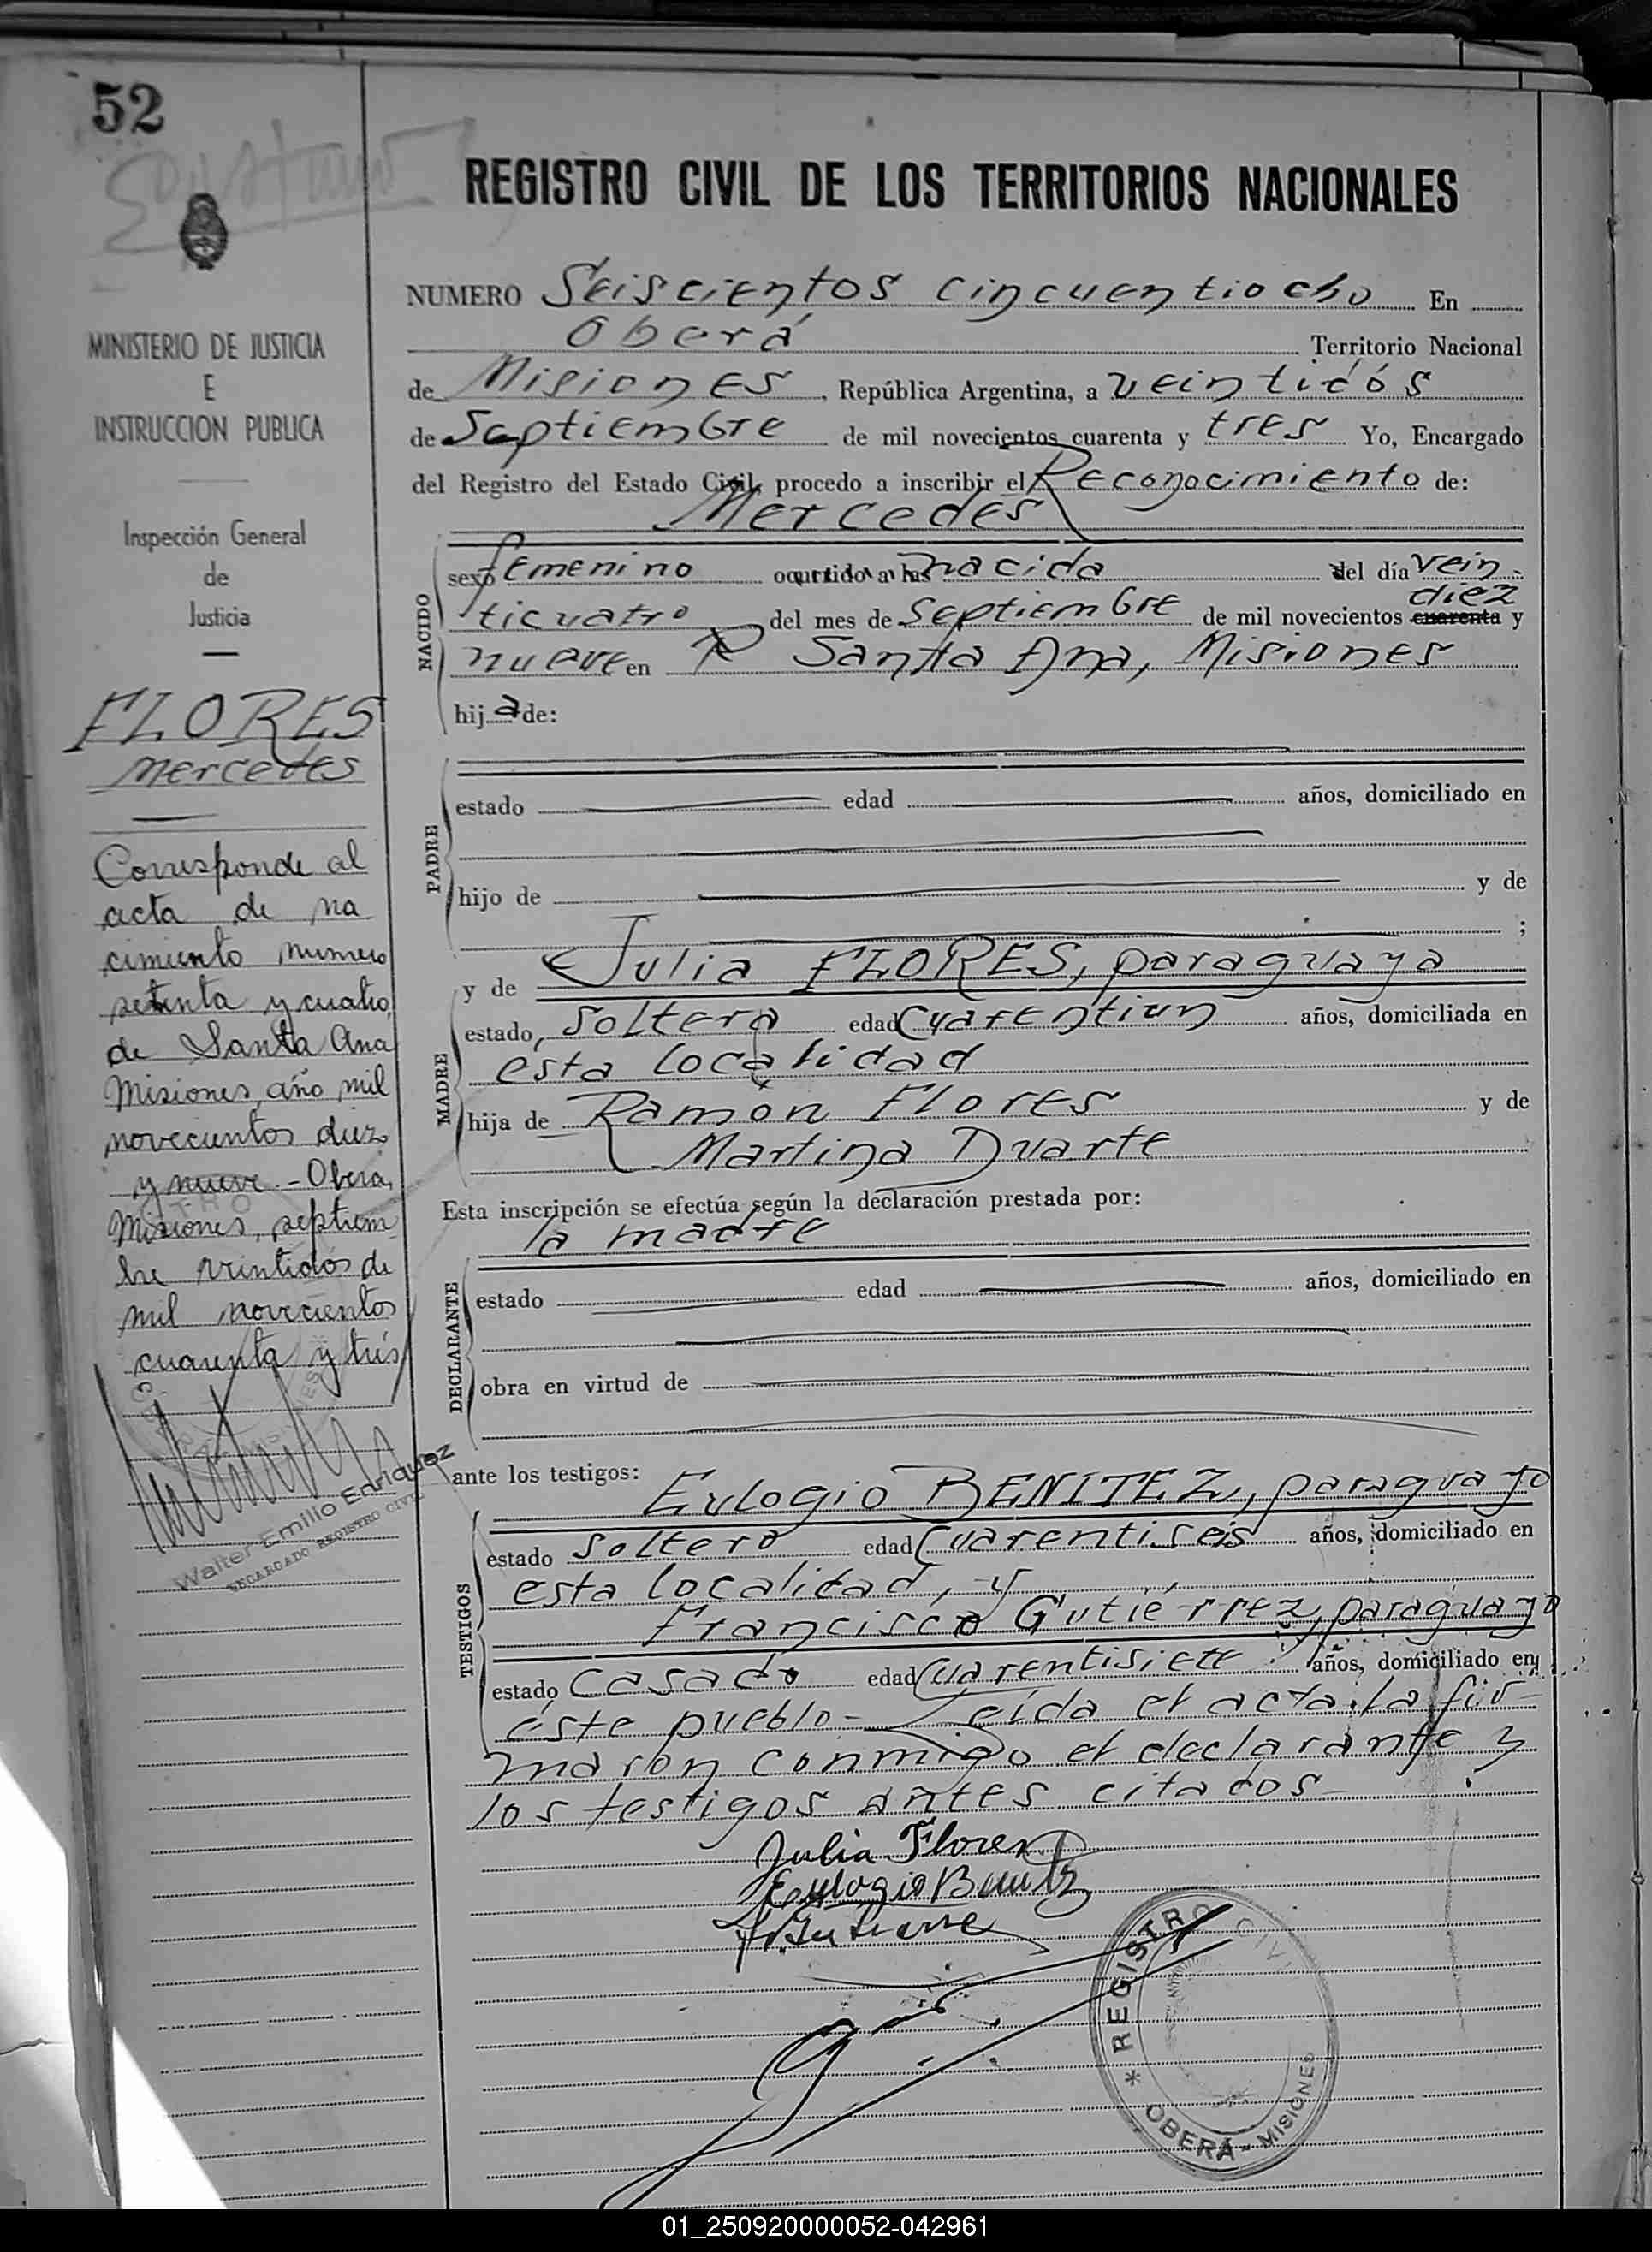 52
REGISTRO CIVIL DE LOS TERRITORIOS NACIONALES
MINISTERIO DE JUSTICIA
E
INSTRUCCION PUBLICA
Inspección General
de
Justicia
FLORES
Mercedes
Corresponde al
acta de na
cimiento numero
setenta y cuatro
de Santa Ana
Misiones, año mil
novecientos diez
y nueve.- Obera,
Misiones, septiem
bre veintidos de
mil novecientos
cuarenta y trés
Walter Emilio Enriquez
ENCARGADO REGISTRO CIVIL
NUMERO Seiscientos cincuentiocho En
Oberá Territorio Nacional
de Misiones, República Argentina, a veintidós
de Septiembre de mil novecientos cuarenta y tres Yo, Encargado
del Registro del Estado Civil, procedo a inscribir el Reconocimiento de:
Mercedes
NACIDO
sexo femenino ocurrido a las nacida del día vein-
ticuatro del mes de Septiembre de mil novecientos cuarenta diez y
nueve en Santa Ana, Misiones
hija de:
PADRE
estado edad años, domiciliado en
hijo de y de
;
MADRE
y de Julia FLORES, paraguaya
estado, Soltera edad cuarentiun años, domiciliada en
esta localidad
hija de Ramón Flores y de
Martina Duarte
Esta inscripción se efectúa según la declaración prestada por:
la madre
DECLARANTE
estado edad años, domiciliado en
obra en virtud de
ante los testigos:
TESTIGOS
Eulogio BENITEZ, paraguayo
estado Soltero edad cuarentiseis años, domiciliado en
esta localidad, y
Francisco Gutiérrez, paraguayo
estado casado edad cuarentisiete años, domiciliado en
éste pueblo- Leída el acta, la fir-
maron conmigo el declarante y
los testigos antes citados-
Julia Flores
Eulogio Benitez
REGISTRO CIVIL
* OBERÁ - MISIONES
01_250920000052-042961